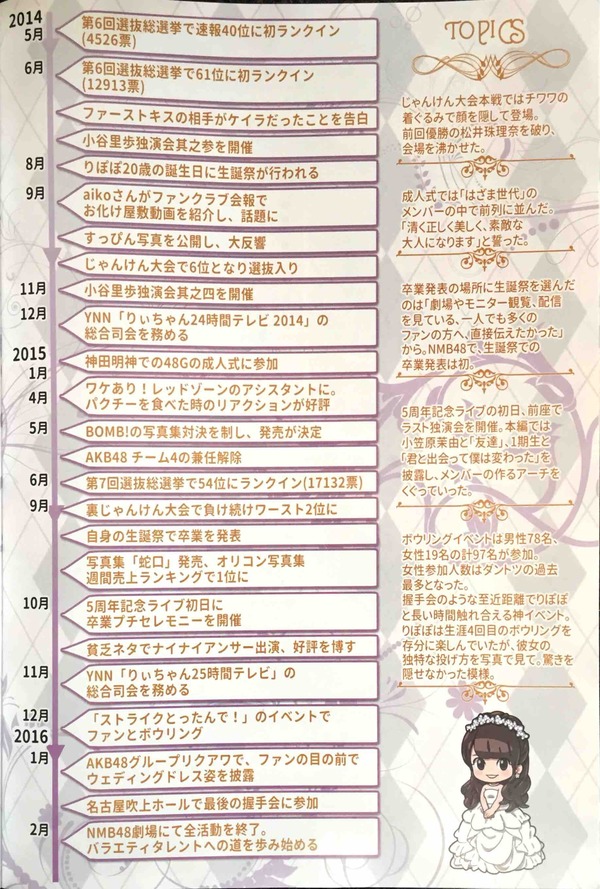 2014
5月
第6回選抜総選挙で速報40位に初ランクイン
(4526票)
6月
第6回選抜総選挙で61位に初ランクイン
(12913票)
ファーストキスの相手がケイラだったことを告白
小谷里歩独演会其之参を開催
8月
りぽぽ20歳の誕生日に生誕祭が行われる
9月
aikoさんがファンクラブ会報で
お化け屋敷動画を紹介し、話題に
すっぴん写真を公開し、大反響
じゃんけん大会で6位となり選抜入り
11月
小谷里歩独演会其之四を開催
12月
YNN「りぃちゃん24時間テレビ 2014」の
総合司会を務める
2015
1月
神田明神での48Gの成人式に参加
4月
ワケあり！レッドゾーンのアシスタントに。
パクチーを食べた時のリアクションが好評
5月
BOMB!の写真集対決を制し、発売が決定
AKB48 チーム4の兼任解除
6月
第7回総選挙で54位にランクイン(17132票)
9月
裏じゃんけん大会で負け続けワースト2位に
自身の生誕祭で卒業を発表
写真集「蛇口」発売、オリコン写真集
週間売上ランキングで1位に
10月
5周年記念ライブ初日に
卒業プチセレモニーを開催
貧乏ネタでナイナイアンサー出演、好評を博す
11月
YNN「りぃちゃん25時間テレビ」の
総合司会を務める
12月
「ストライクとったんで！」のイベントで
ファンとボウリング
2016
1月
AKB48グループリクアワで、ファンの目の前で
ウェディングドレス姿を披露
名古屋吹上ホールで最後の握手会に参加
2月
NMB48劇場にて全活動を終了。
バラエティタレントへの道を歩み始める
TOPICS
じゃんけん大会本戦ではチワワの
着ぐるみで顔を隠して登場。
前回優勝の松井珠理奈を破り、
会場を沸かせた。
成人式では「はざま世代」の
メンバーの中で前列に並んだ。
「清く正しく美しく、素敵な
大人になります」と誓った。
卒業発表の場所に生誕祭を選んだ
のは「劇場やモニター観覧、配信
を見ている、一人でも多くの
ファンの方へ、直接伝えたかった」
から。NMB48で、生誕祭での
卒業発表は初。
5周年記念ライブの初日、前座で
ラスト独演会を開催。本編では
小笠原茉由と「友達」、1期生と
「君と出会って僕は変わった」を
披露し、メンバーの作るアーチを
くぐっていった。
ボウリングイベントは男性78名、
女性19名の計97名が参加。
女性参加人数はダントツの過去
最多となった。
握手会のような至近距離でりぽぽ
と長い時間触れ合える神イベント。
りぽぽは生涯4回目のボウリングを
存分に楽しんでいたが、彼女の
独特な投げ方を写真で見て。驚きを
隠せなかった模様。